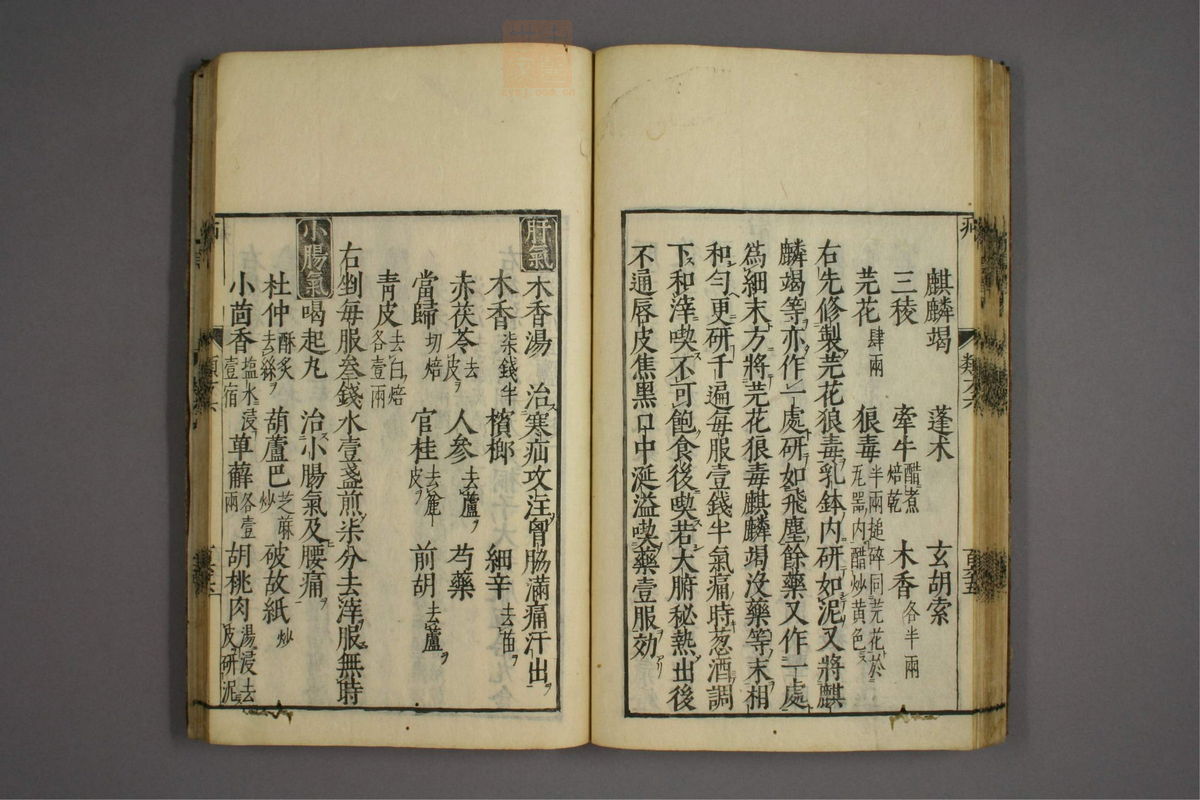 麒麟竭 蓬朮 玄胡索
三稜 牽牛醋煮焙乾 木香各半兩
芫花肆兩 狼毒半兩搥碎同芫花於瓦器內醋炒黄色
右先修製芫花狼毒乳鉢内研如泥又將麒
麟竭等亦作一處研如飛塵餘藥又作一處
爲細末方將芫花狼毒麒麟竭没藥等末相
和勻更研千遍每服壹錢半氣痛時葱酒調
下和滓喫不可飽食後喫若大腑秘熱出後
不通唇皮焦黑口中涎溢喫藥壹服効
肝氣 木香湯 治寒疝攻注胷脇滿痛汗出
木香柒錢半 檳榔 細辛去苗
赤茯苓去皮 人參去蘆 芍藥
當歸切焙 官桂去麁皮 前胡去蘆
青皮去白焙各壹兩
右剉每服叄錢水壹盞煎柒分去滓服無時
小腸氣 喝起丸 治小腸氣及腰痛
杜仲酥炙去絲 葫蘆巴芝蔴炒 破故紙炒
小茴香塩水浸壹宿 草薢各壹兩 胡桃肉湯浸去皮研泥